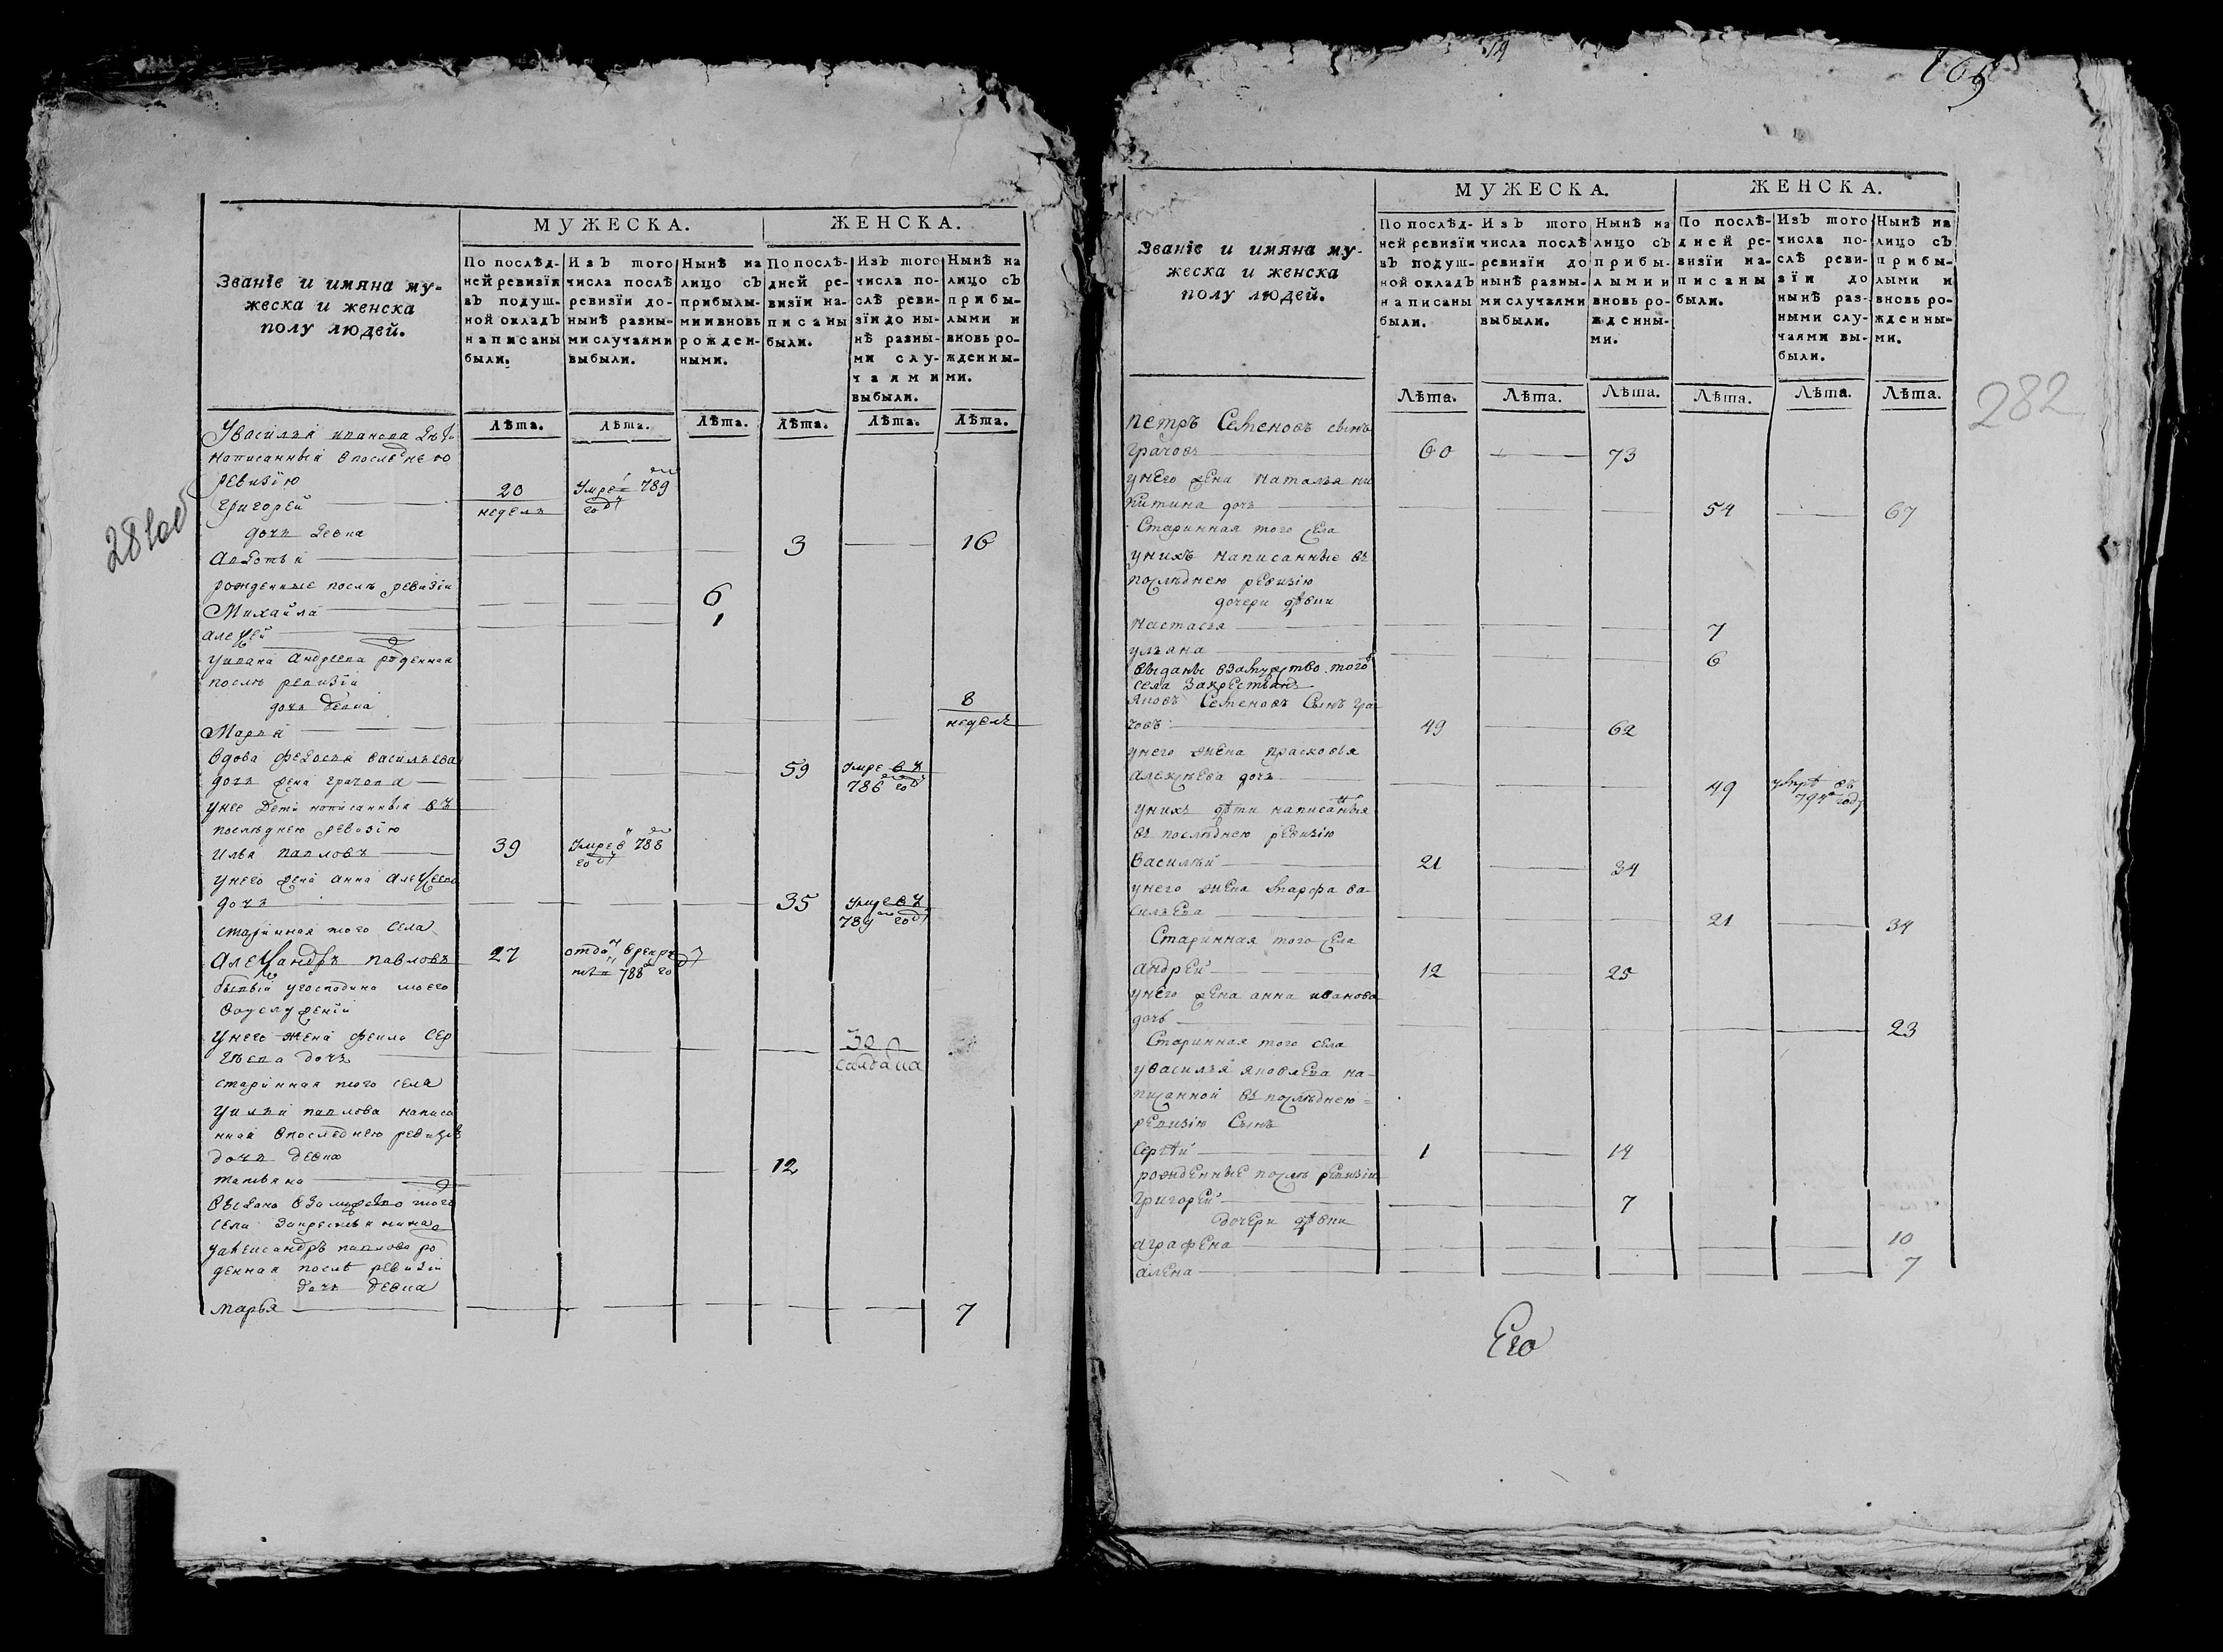 281об
Званïе и имяна му-
жеска и женска
полу людей.
МУЖЕСКА.
ЖЕНСКА.
По послѣд-
ней ревизïи
въ подуш-
ной окладъ
написаны
были.
Изъ того
числа послѣ
ревизïи до-
нынѣ разны-
ми случаями
выбыли.
Нынѣ на
лицо съ
прибылы-
ми и вновь
рожден-
ными.
По послѣ-
дней ре-
визïи на-
писаны
были.
Изъ того
числа по-
слѣ реви-
зïи до ны-
нѣ разны-
ми слу-
чаями
выбыли.
Нынѣ на
лицо съ
прибы-
лыми и
вновь ро-
жденны-
ми.
Лѣта. Лѣта. Лѣта. Лѣта. Лѣта. Лѣта.
Увасилья иванова
написанныя впоследнею
ревизïю
григорей 20 недель умре 789 году
дочь девка
авдотья 3 16
рожденные послѣ ревизïи
Михайла 6
алексей 1
уивана андреева рожденная
послѣ ревизïи
дочь девка
Марья 8 недель
вдова федосья васильева
дочь жена грачова 59 умре въ 786 году
унее дети написанныя въ
последнею ревизïю
илья павловъ 39 умре в 788 году
унего жена анна алексеева
дочь 35 умре въ 789 году
старинная того села
александръ павловъ 27 отдан врекруты 788 году
бывый угосподина моего
воуслуженïи
унего жена фекла сер
геева дочь 30 салдатка
старинная того села
уильи павлова написа
нная впоследнею ревизïю
дочь девка
татьяна 12
выдана взамужество того
села закрестьянина
уалександръ павлова рож
денная послѣ ревизïи
дочь девка
марья 7
14
165
282
Званïе и имяна му-
жеска и женска
полу людей.
МУЖЕСКА.
ЖЕНСКА.
По послѣд-
ней ревизïи
въ подуш-
ной окладъ
написаны
были.
Изъ того
числа послѣ
ревизïи до
нынѣ разны-
ми случаями
выбыли.
Нынѣ на
лицо съ
прибы-
лыми и
вновь ро-
жденны-
ми.
По послѣ-
дней ре-
визïи на-
писаны
были.
Изъ того
числа по-
слѣ реви-
зïи до
нынѣ раз-
ными слу-
чаями вы-
были.
Нынѣ на
лицо съ
прибы-
лыми и
вновь ро-
жденны-
ми.
Лѣта. Лѣта. Лѣта. Лѣта. Лѣта. Лѣта.
петръ Семеновъ сынъ
грачовъ 60 73
унего жена наталья ни
китина дочь 54 67
Старинная того села
унихъ написанные въ
послѣднею ревизïю
дочери дѣвки
настасья 7
ульяна 6
выданы взамужство того
села закрестьянъ
яковъ Семеновъ Сынъ гра
човъ 49 62
унего жена прасковья
алексѣева дочь 49 умрѣ въ 794 году
унихъ дѣти написанныя
въ послѣднею ревизïю
василѣй 21 34
унего жена марфа ва-
сильева 21 34
Старинная того села
андрей 12 25
унего жена анна иванова
дочь 23
Старинная того села
увасилья яковлева на-
писанной въ послѣднею
ревизïю Сынъ
сергѣй 1 14
рожденные послѣ ревизïи
григорей 7
дочери дѣвки
аграфена 10
алена 7
Его